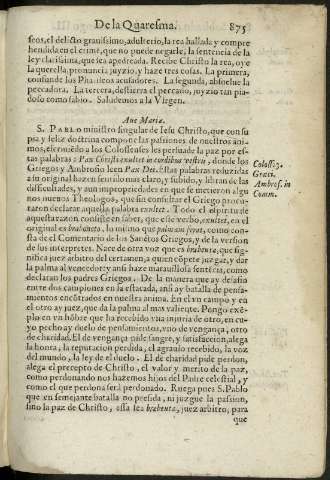 De la Quaresma. 875
ſeos, el delicto grauiſsimo, adulterio, la rea hallada y compre
hendida en el crimē, que no puede negarle, la ſentencia de la
ley clariſsima, que ſea apedreada. Recibe Chriſto la rea, oye
la querella, pronuncia juyzio, y haze tres coſas. La primera,
confunde los Phariſeos acuſadores. La ſegunda, abſuelue la
peccadora. La tercera, deſtierra el peccado, juyzio tan pia-
doſo como ſabio. Saludemos a la Virgen.
Aue Maria.
S. PABLO miniſtro ſingular de Ieſu Chriſto, que con ſu
pia y feliz doctrina compone las paſsiones de nueſtros ani
mos, eſcriuiendo a los Coloſſenſes les perſuade la paz por eſ-
tas palabras: Pax Chriſti exultet in cordibus veſtris, donde los
Griegos y Ambroſio leen Pax Dei. Eſtas palabras reduzidas
a ſu original hazen ſentido mas claro, y ſubido, y libran de las
difficultades, y aun impropriedades en que ſe metieron algu
nos nueuos Theologos, que ſin conſultar el Griego procu-
raron declarar aquella palabra exultet. Todo el eſpiritu de
aqueſta razon conſiſte en ſaber, que eſſe verbo, exultet, en el
original es brabeueto, lo miſmo que palmam ferat, como con-
ſta de el Comentario de los Sanctos Griegos, y de la verſion
de los interpretes. Nace de otra voz que es brabeuta, que ſig-
nifica juez arbitro del certamen, a quien cōpete juzgar, y dar
la palma al vencedor: y anſi haze marauilloſa ſentēcia, como
declaran los padres Griegos. De la manera que ay deſafio
entre dos campiones en la eſtacada, anſi ay batalla de penſa-
mientos encōtrados en nueſtra anima. En el vn campo y en
el otro ay juez, que da la palma al mas valiente. Pongo exē-
plo en vn hōbre que ha recebido vna injuria de otro, en cu-
yo pecho ay duelo de penſamientos, vno de vengança, otro
de charidad. El de vengança pide ſangre, y ſatisfaccion, alega
la honra, la reputacion perdida, el agrauio recebido, la voz
del mundo, la ley de el duelo. El de charidad pide perdon,
alega el precepto de Chriſto, el valor y merito de la paz,
como perdonando nos hazemos hijos del Padre celeſtial, y
como el que perdona ſerà perdonado. Ruega pues S. Pablo
que en ſemejante batalla no preſida, ni juzgue la paſsion,
ſino la paz de Chriſto, eſſa ſea brabeuta, juez arbitro, para
que
Coloſſ. 3.
Græci.
Ambroſ. in
Comm.